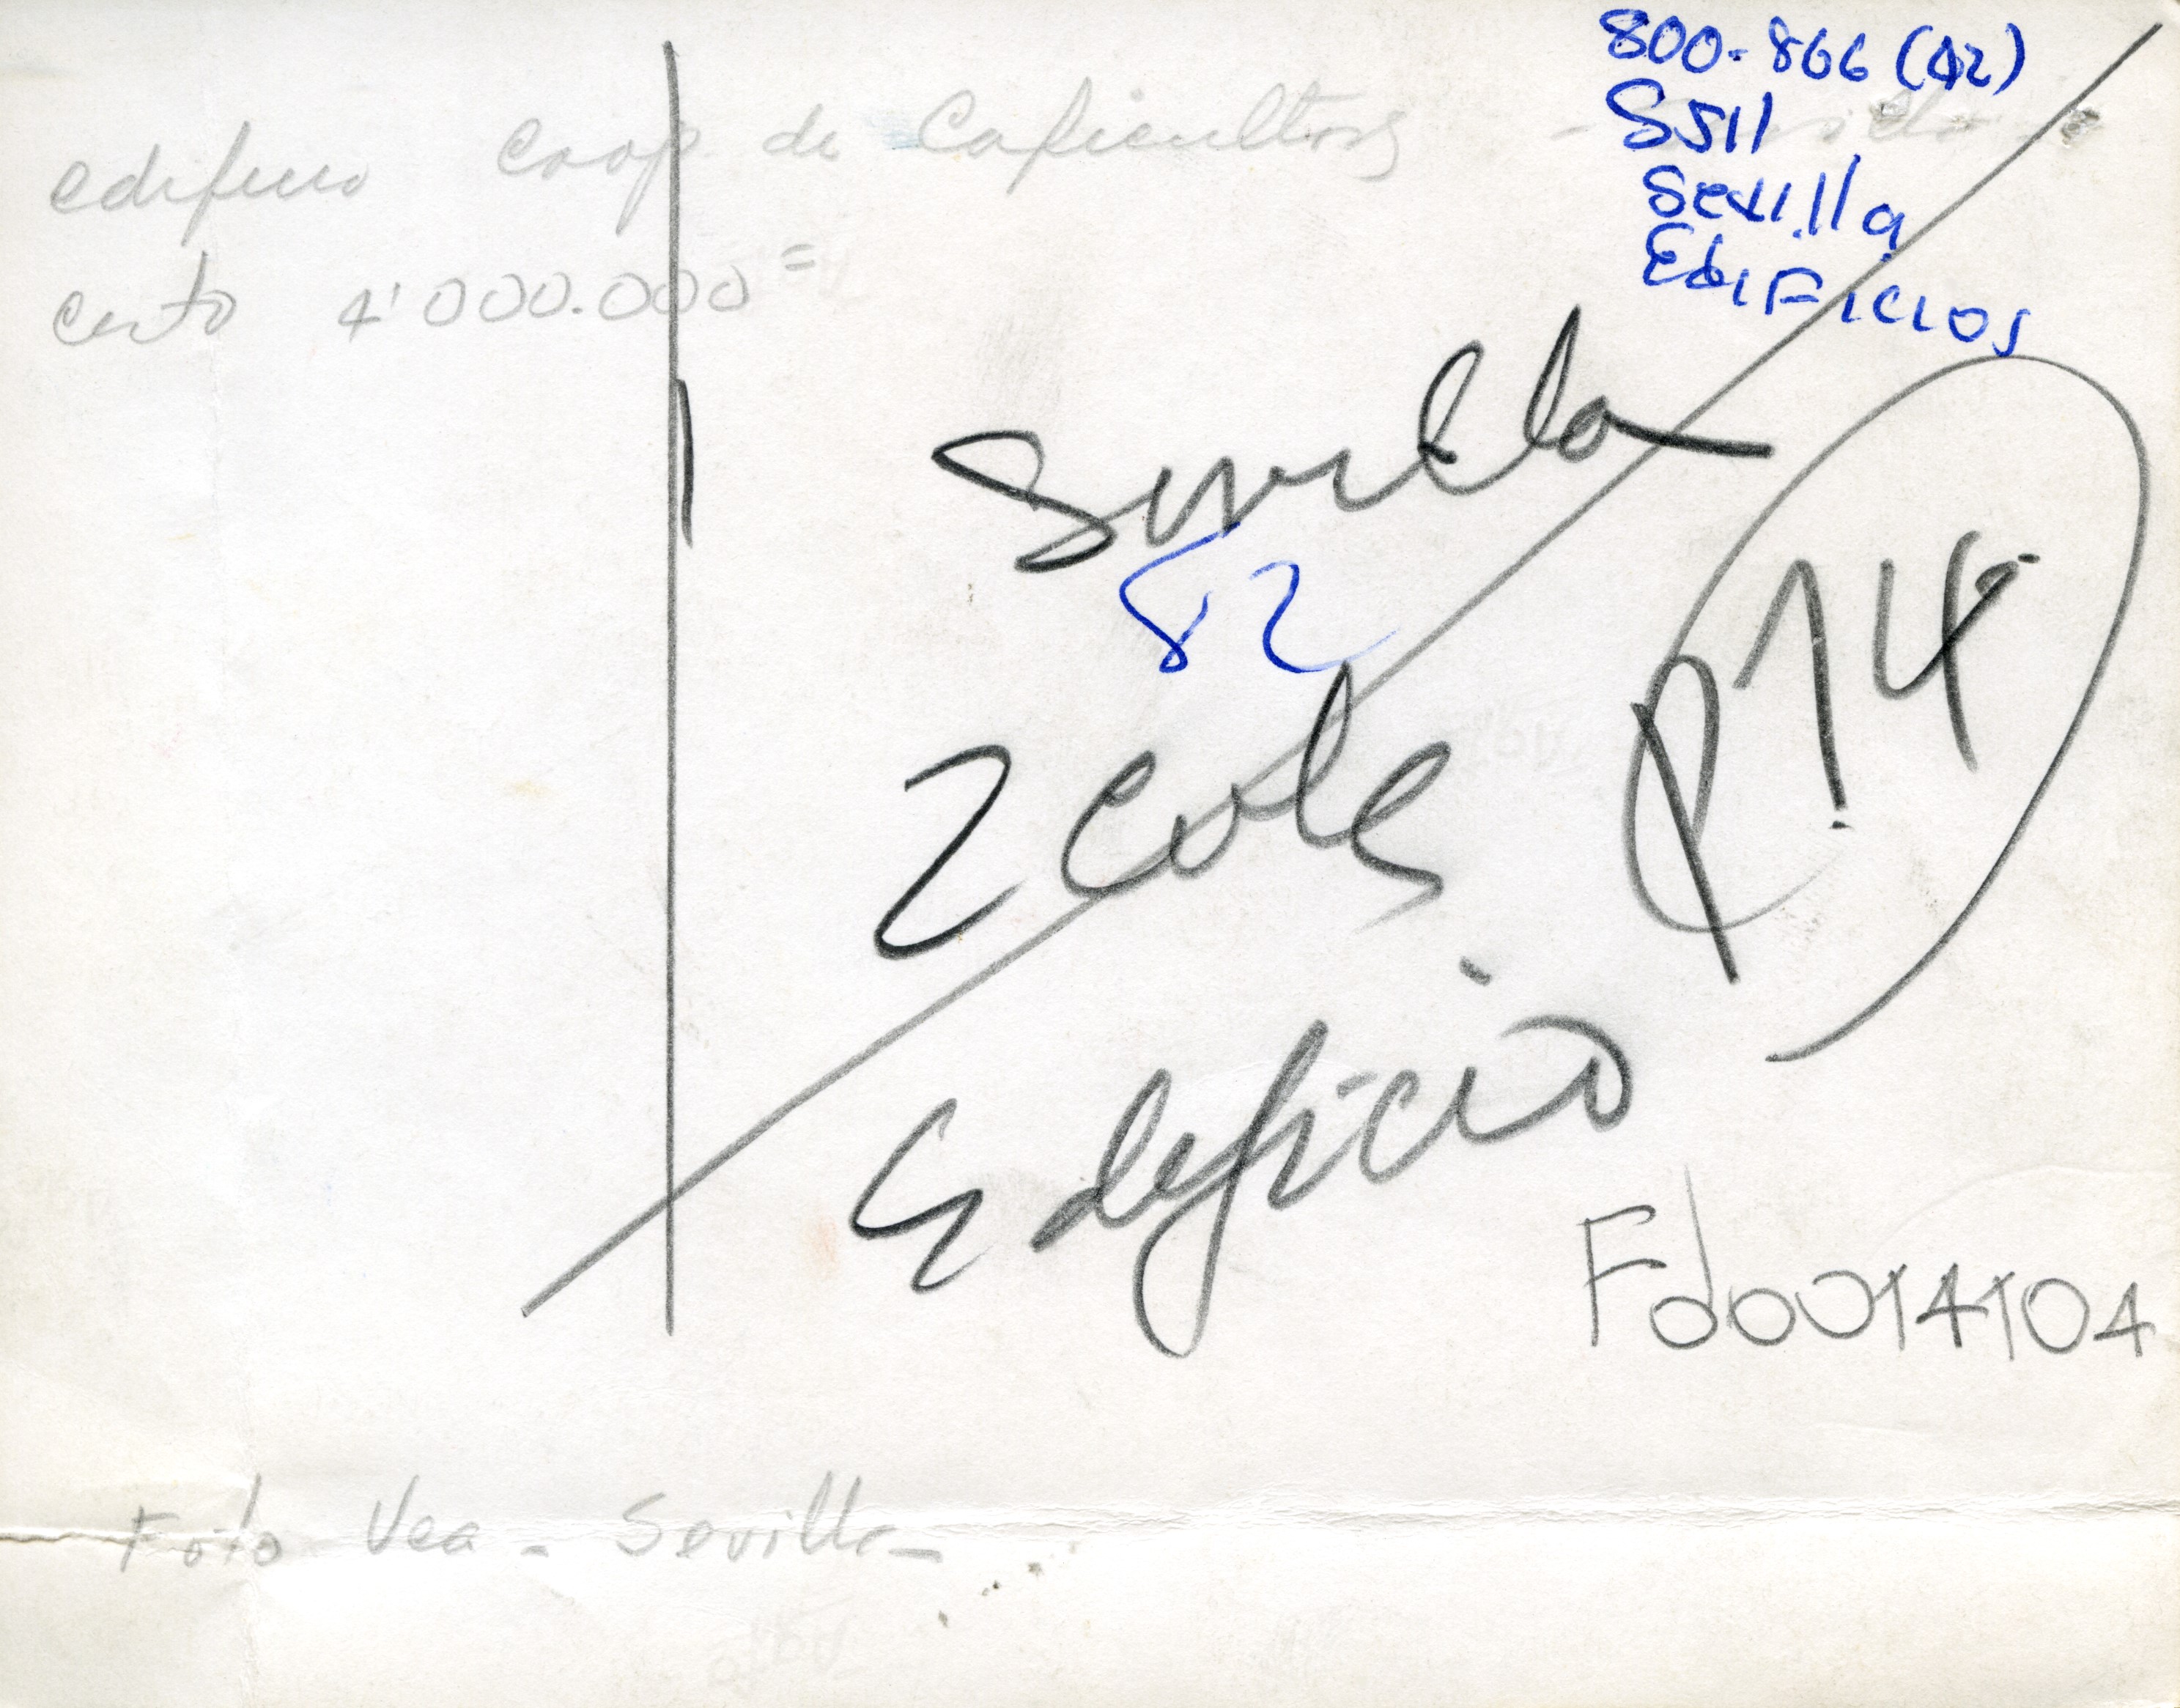 800-866 (A2)
S511
Sevilla
Edificios
edificio Coop de Caficultores - Sevilla -
costo 4'000.000=
Sevilla
82
2 cols
P.14
Edificio
Fdo0014104
Foto Vea - Sevilla -